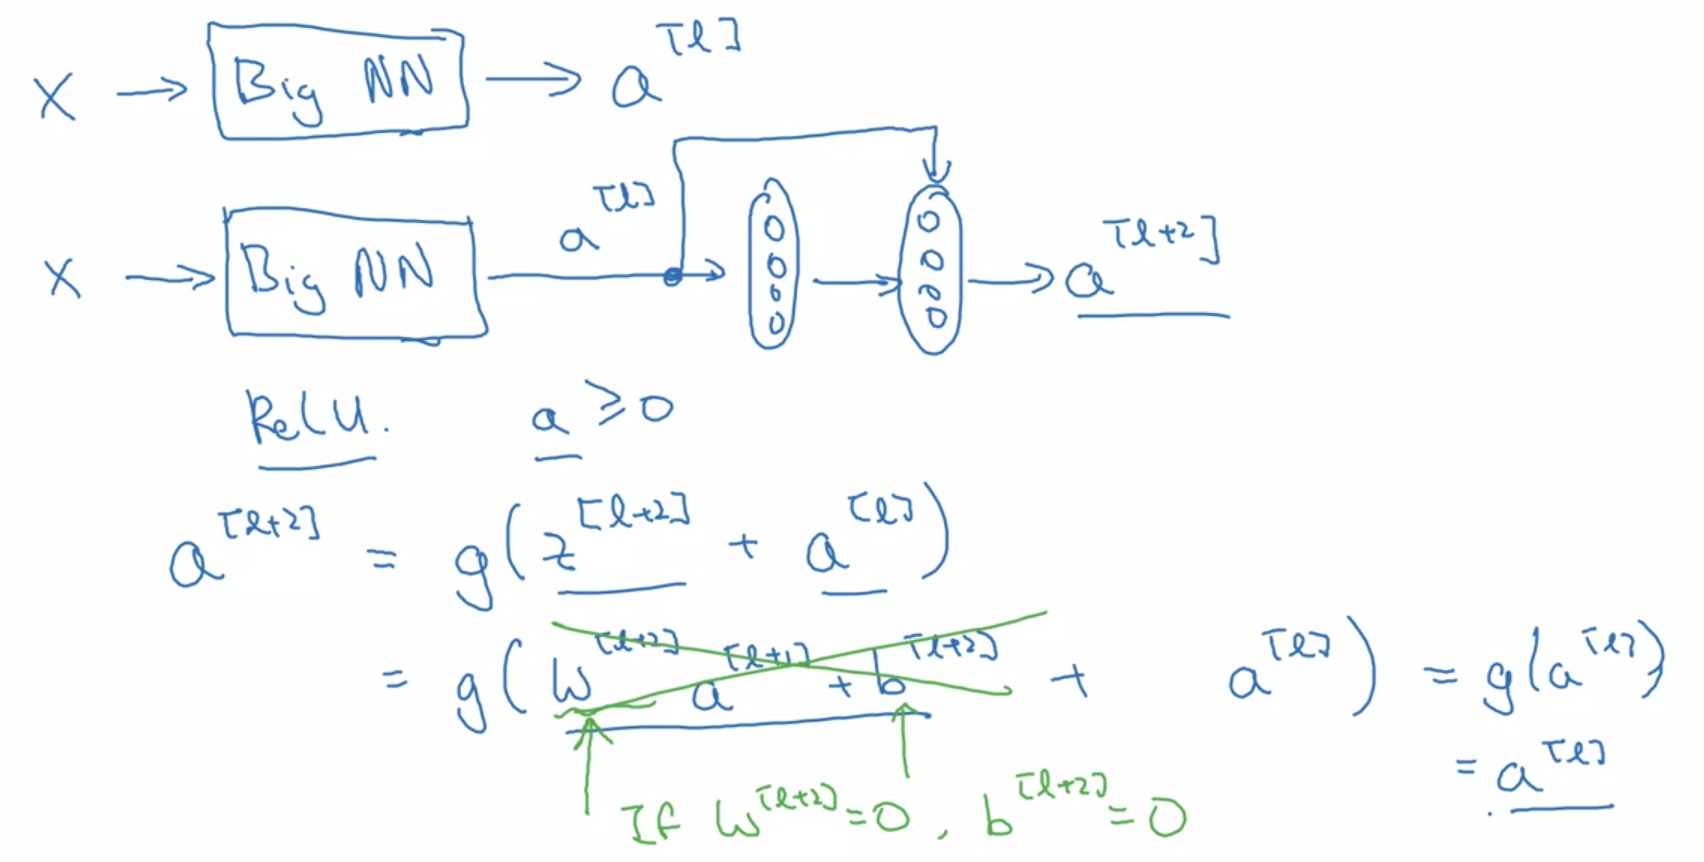 X → Big NN → a^[l]
X → Big NN → a^[l] → → a^[l+2]
ReLU. a ≥ 0
a^[l+2] = g(z^[l+2] + a^[l])
= g(W^[l+2] a^[l+1] + b^[l+2] + a^[l]) = g(a^[l])
= a^[l]
If W^[l+2] = 0, b^[l+2] = 0